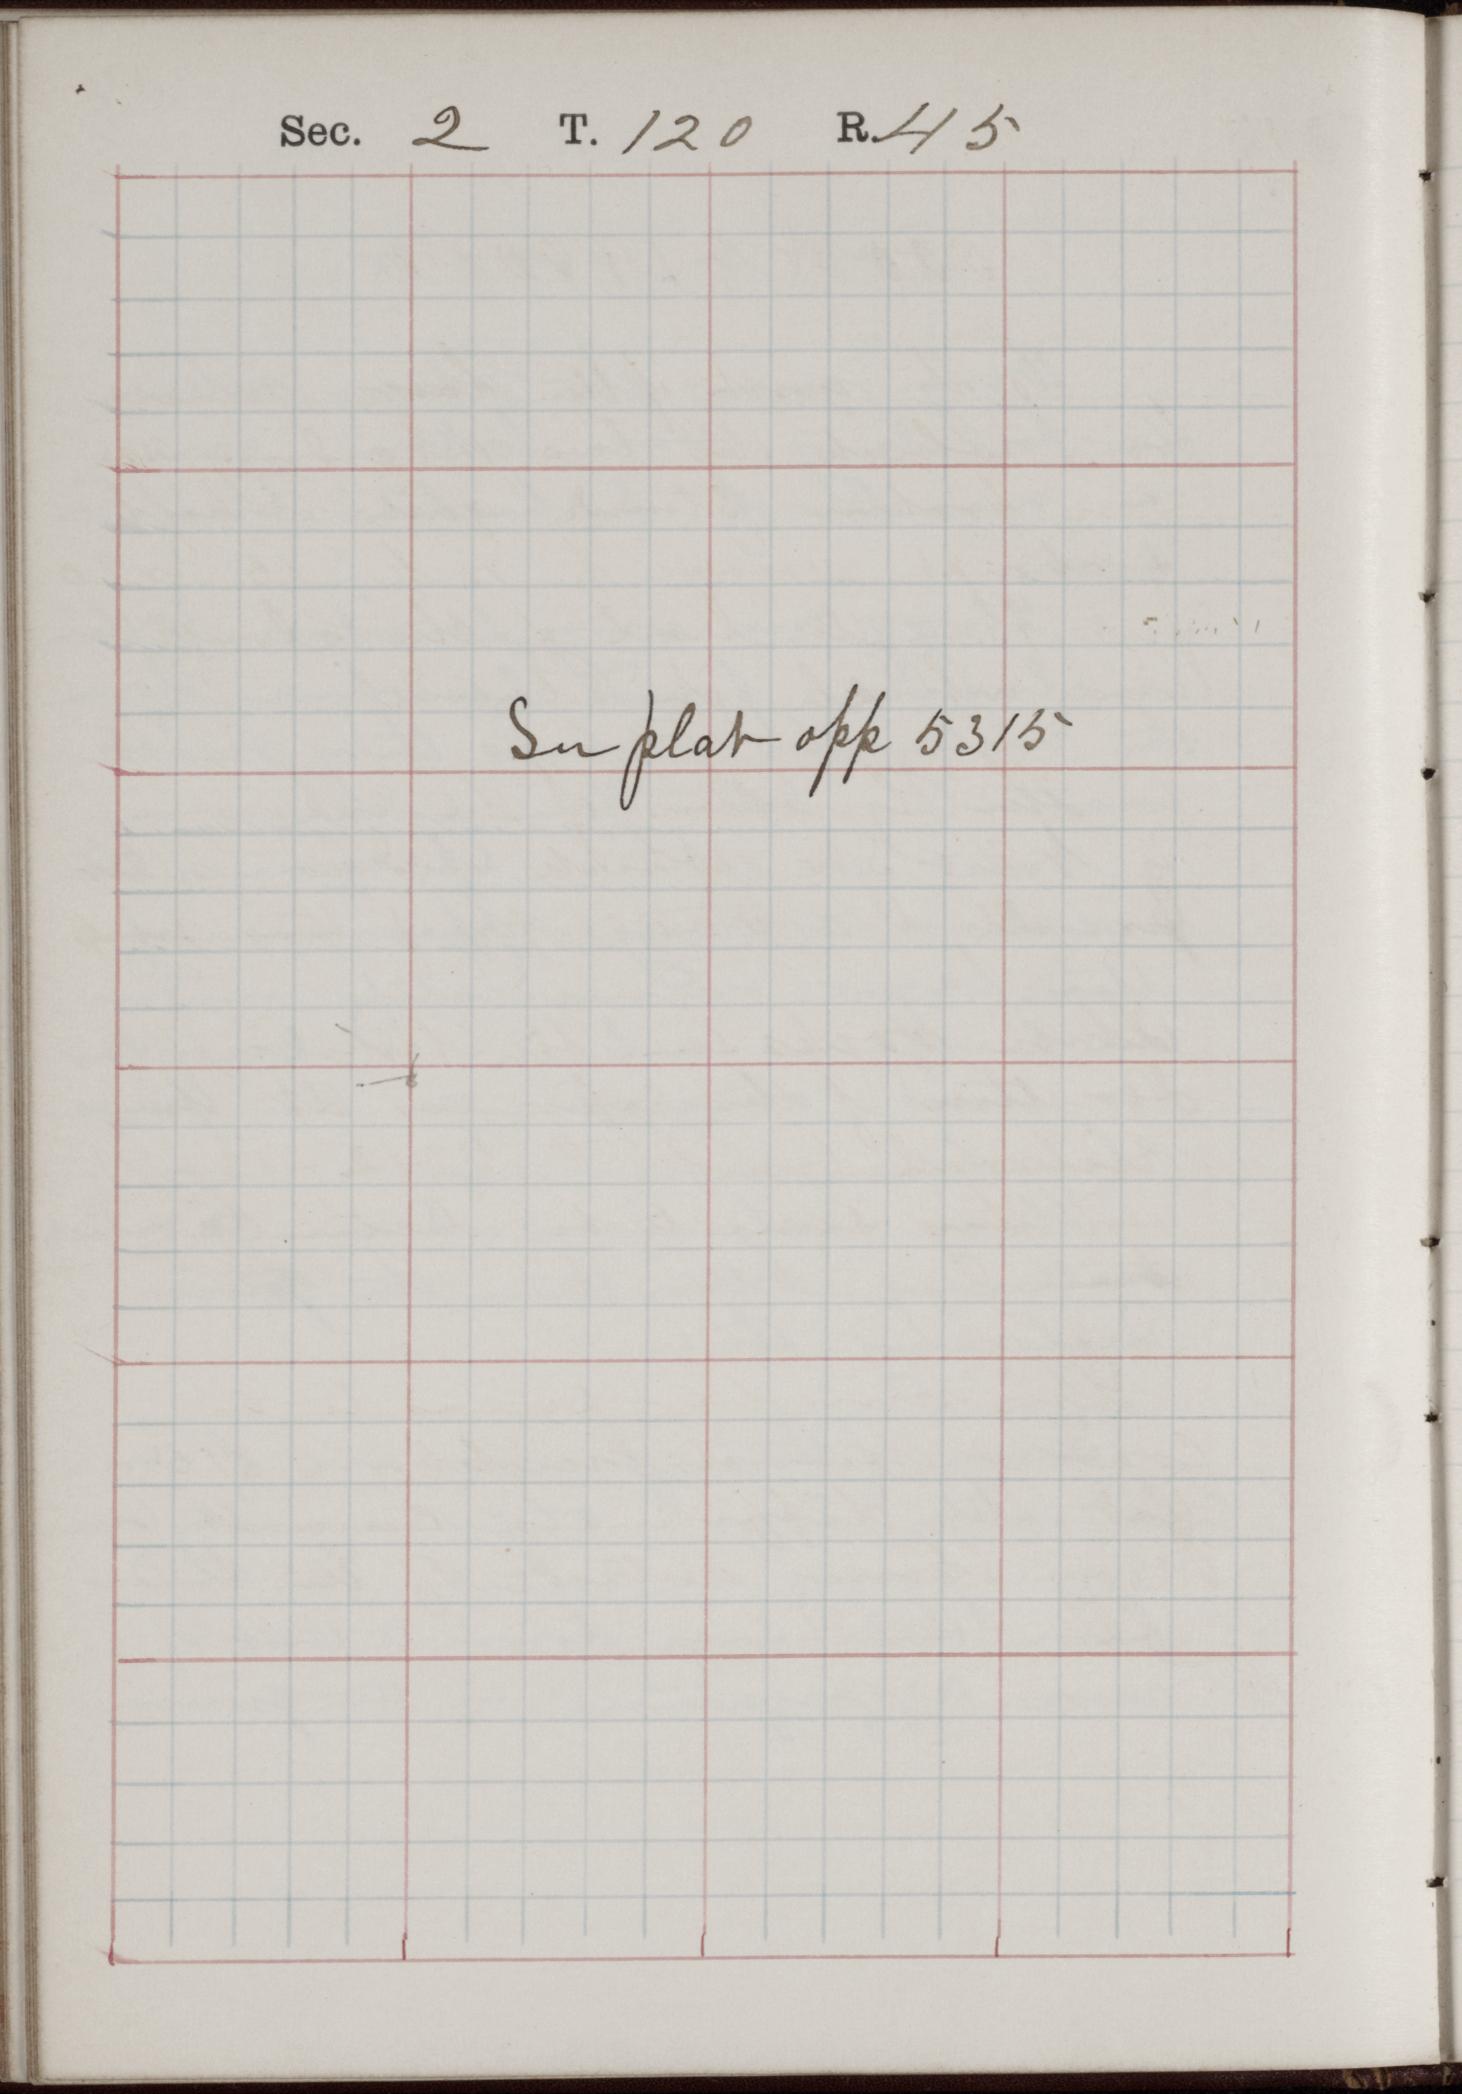 Sec. 2 T. 120 R. 45
See plat opp 5315